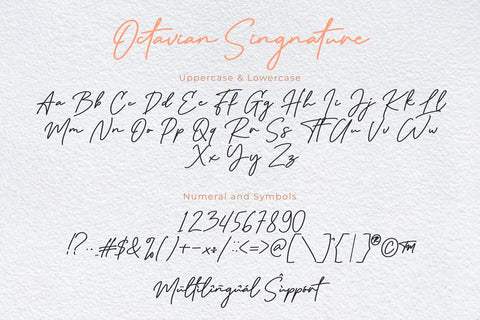 Octavian Singnature
Uppercase & Lowercase
Aa Bb Cc Dd Ee Ff Gg Hh Ii Jj Kk Ll
Mm Nn Oo Pp Qq Rr Ss Tt Uu Vv Ww
Xx Yy Zz
Numeral and Symbols
1234567890
!?..,#$&%()+-×÷/:;<=>@[\]^{|}®©™
Múltílingúál Súpport